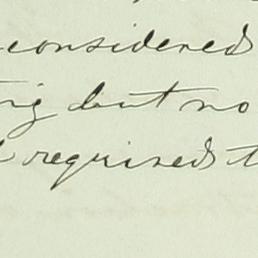 considered
but no
required t